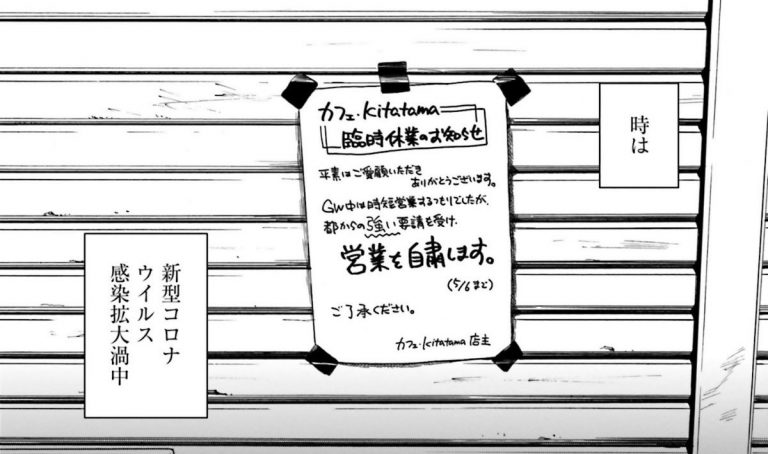 時は
カフェ・kitatama
臨時休業のお知らせ
平素はご愛顧いただき
ありがとうございます。
GW中は時短営業するつもりでしたが、
都からの強い要請を受け、
営業を自粛します。
(5/6まで)
ご了承ください。
カフェ・kitatama 店主
新型コロナ
ウイルス
感染拡大渦中